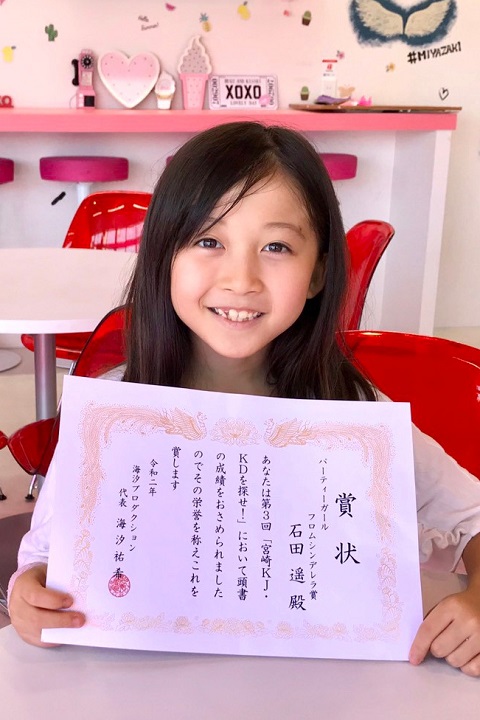 #MIYAZAKI
XOXO
賞状
パーティーガール
フロムシンデレラ賞
石田 遥 殿
あなたは第3回「宮崎KJ・
KDを探せ!」において頭書
の成績をおさめられました
のでその栄誉を称えこれを
賞します
令和二年
海汐プロダクション
代表 海汐 祐希